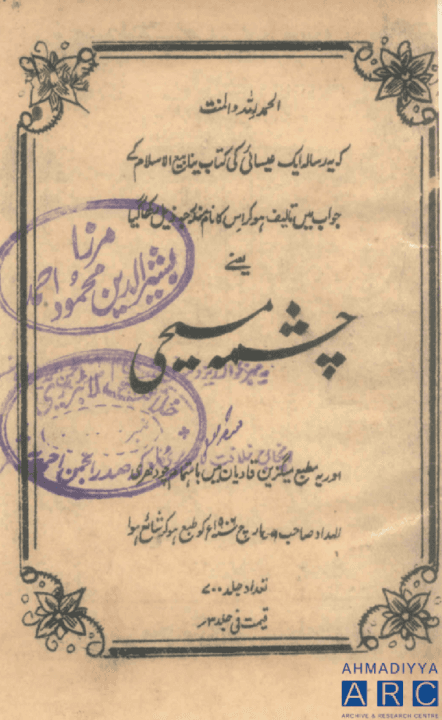 الحمد للہ والمنت
کہ یہ رسالہ ایک عیسائی کی کتاب ینابیع الاسلام کے
جواب میں تالیف ہو کر اس کا نام مندرجہ ذیل رکھا گیا
یعنے
چشمہ مسیحی
مرزا
بشیر الدین محمود احمد
خلافت لائبریری
صدر انجمن احمدیہ
اور یہ مطبع میگزین قادیان میں باہتمام چودھری
الہداد صاحب ۹ مارچ ۱۹۰۶ء کو طبع ہو کر شائع ہوا
تعداد جلد ۷۰۰
قیمت فی جلد ۳؍
AHMADIYYA
ARC
ARCHIVE & RESEARCH CENTRE